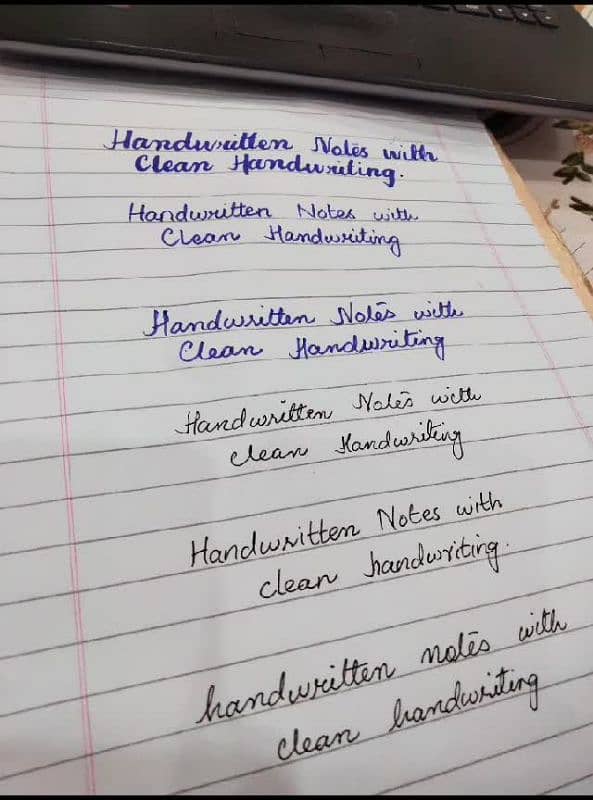 Handwritten Notes with
Clean Handwriting.
Handwritten Notes with
Clean Handwriting
Handwritten Notes with
Clean Handwriting
Handwritten Notes with
clean Handwriting
Handwritten Notes with
clean handwriting.
handwritten notes with
clean handwriting